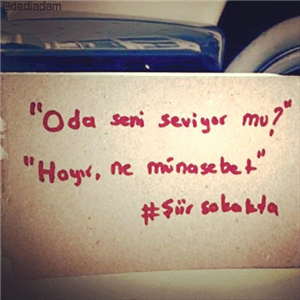 @dediadam
"Oda seni seviyor mu?"
"Hayır, ne münasebet"
#Şiir sokakta